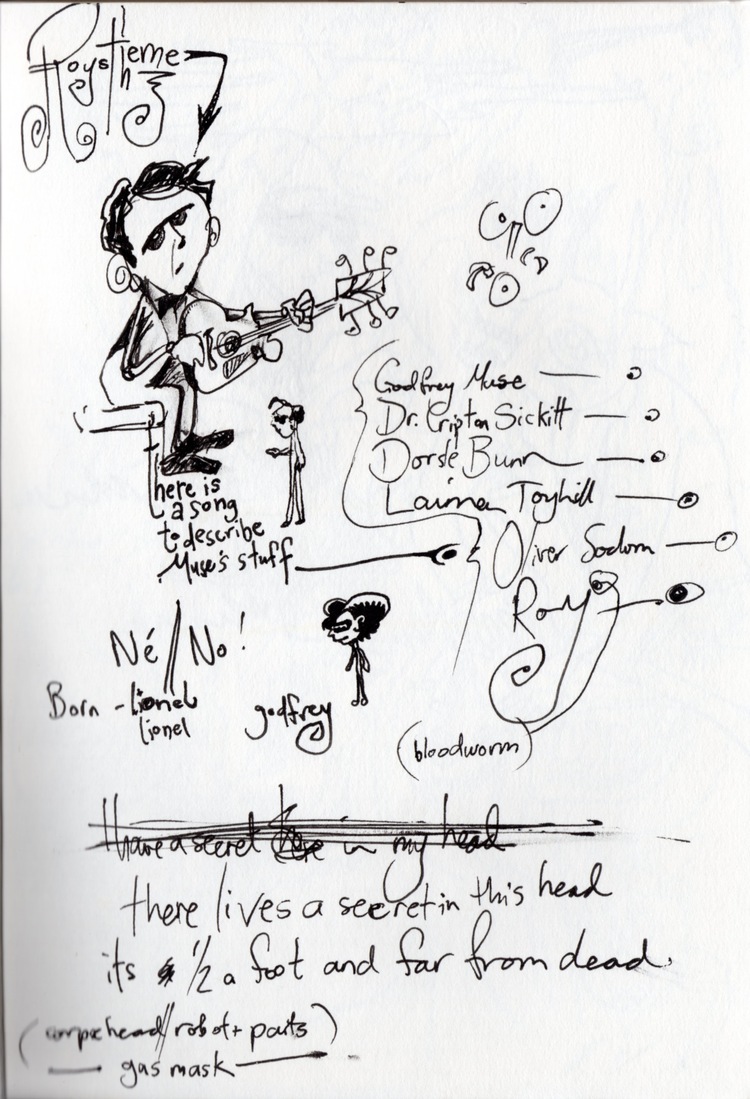 Roys Theme
Godfrey Muse
Dr. Cripton Sickitt
Dorse Bunn
Laima Toyhill
Oliver Sodom
Roy
(bloodworm)
here is
a song
to describe
Muse's stuff
Né // No!
Born - lionel
lionel
godfrey
I have a secret in my head
there lives a secret in this head
its 1/2 a foot and far from dead.
(corpse head // robot + parts)
gas mask